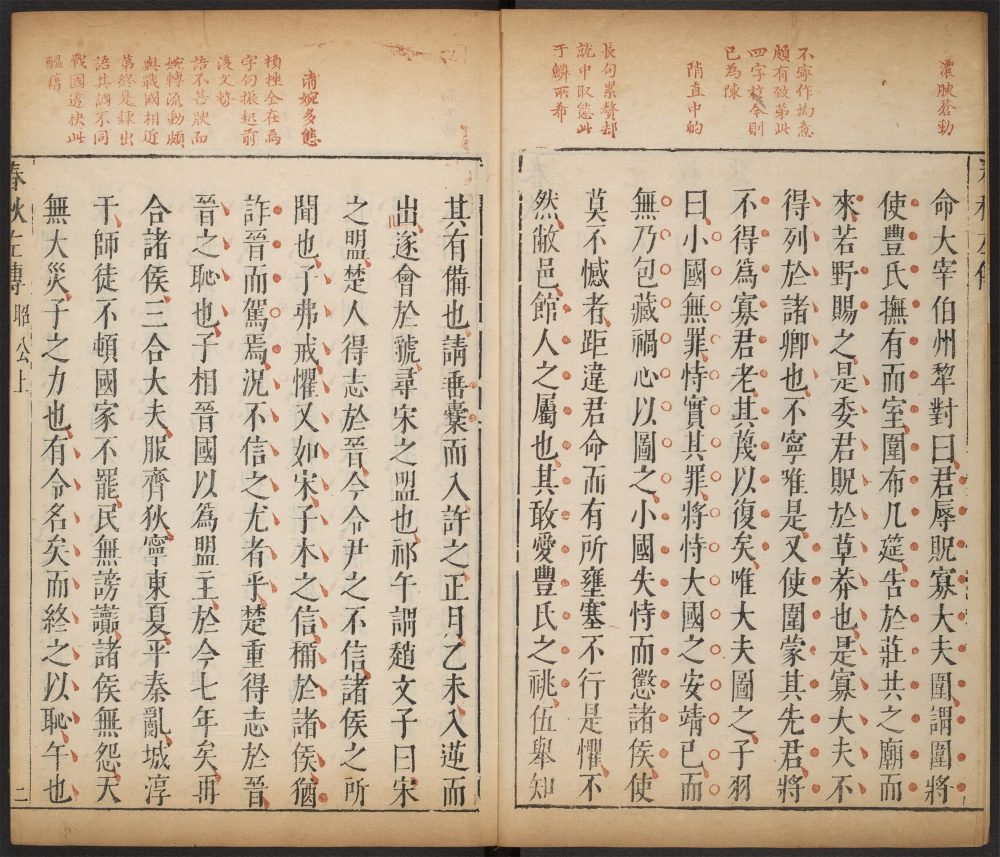 濃腴蒼勁
不寧作拗意
頗有致第此
四字於今則
已為陳
陗直中的
長句累贅却
就中取態此
于鱗所希
命大宰伯州犂對曰君辱貺寡大夫圍謂圍將
使豐氏撫有而室圍布几筵告於莊共之廟而
來若野賜之是委君貺於草莽也是寡大夫不
得列於諸卿也不寧唯是又使圍蒙其先君將
不得爲寡君老其蔑以復矣唯大夫圖之子羽
曰小國無罪恃實其罪將恃大國之安靖已而
無乃包藏禍心以圖之小國失恃而懲諸侯使
莫不憾者距違君命而有所壅塞不行是懼不
然敝邑館人之屬也其敢愛豐氏之祧伍舉知
清婉多態
頓挫全在為
守句振起前
後文勢
語不甚腴而
婉轉流動頗
與戰國相近
第終是鍊出
語其調不同
戰國透快此
醞藉
其有備也請垂櫜而入許之正月乙未入逆而
出遂會於虢尋宋之盟也祁午謂趙文子曰宋
之盟楚人得志於晉今令尹之不信諸侯之所
聞也子弗戒懼又如宋子木之信稱於諸侯猶
詐晉而駕焉況不信之尤者乎楚重得志於晉
晉之恥也子相晉國以爲盟主於今七年矣再
合諸侯三合大夫服齊狄寧東夏平秦亂城淳
于師徒不頓國家不罷民無謗讟諸侯無怨天
無大災子之力也有令名矣而終之以恥午也
春秋左傳 昭公上 二